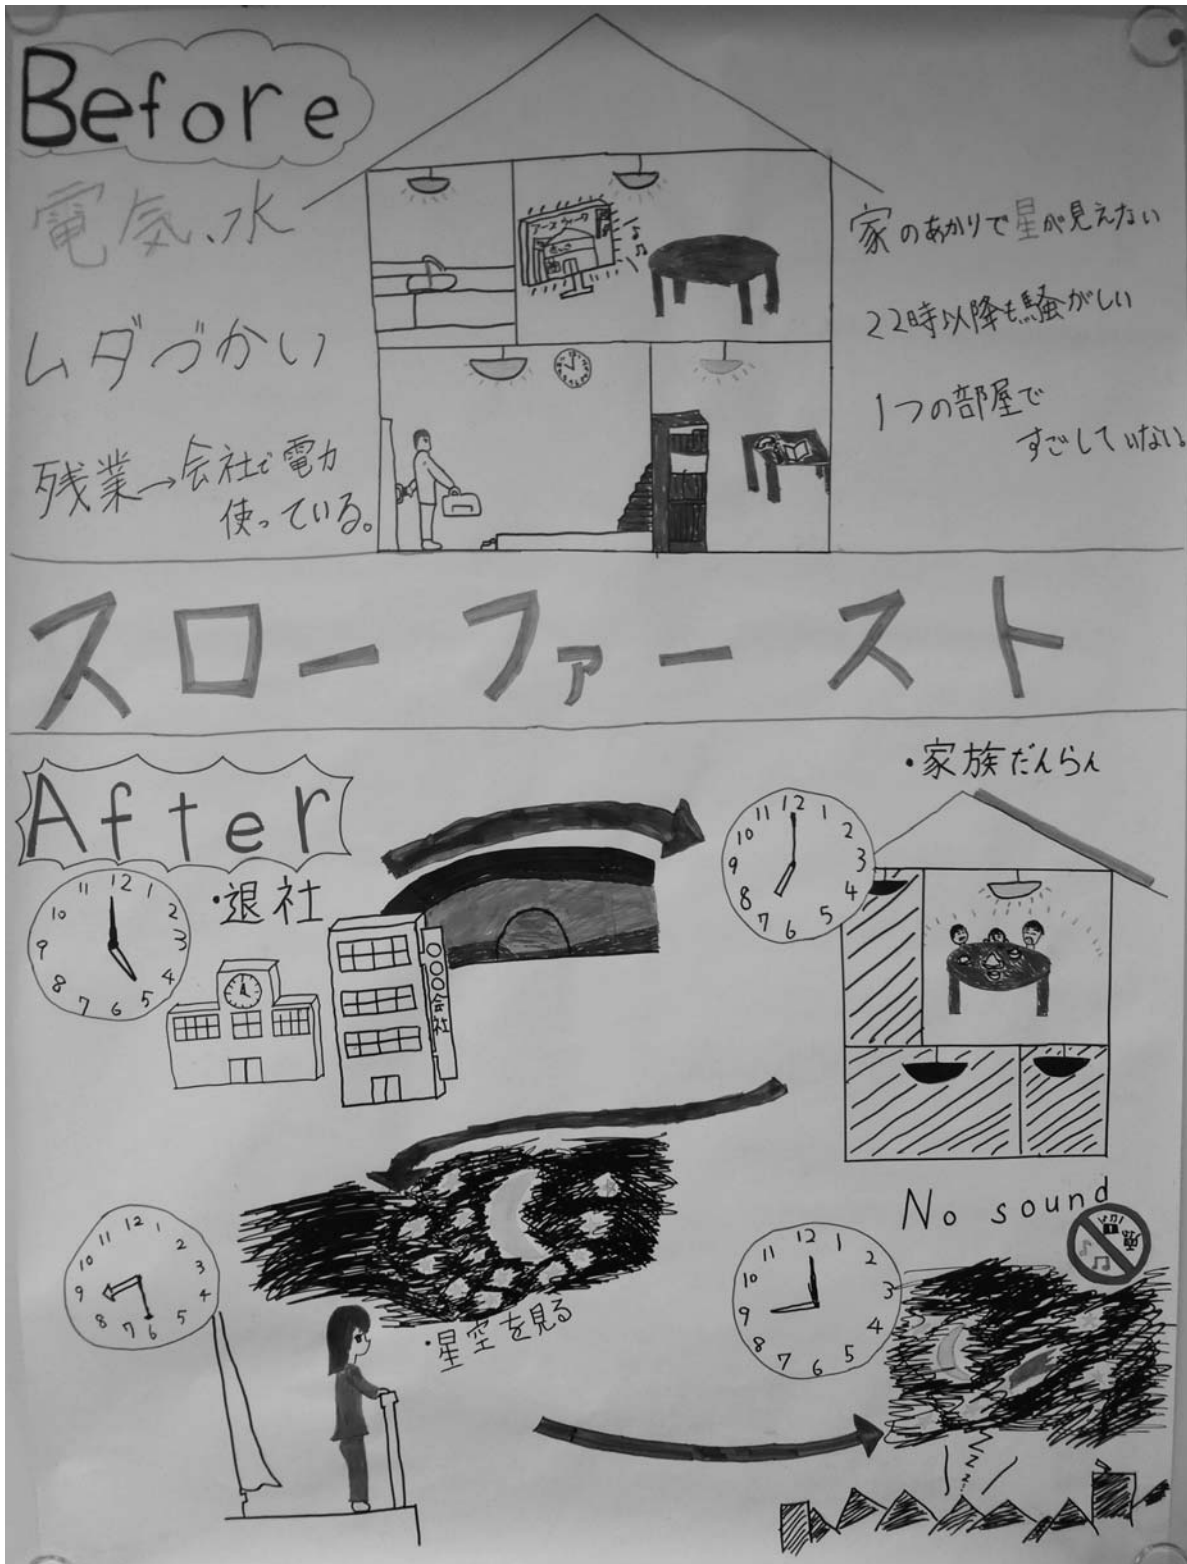 Before
電気、水
ムダづかい
残業→会社で電力
使っている。
家のあかりで星が見えない
22時以降も騒がしい
1つの部屋で
すごしていない
スローファースト
After
・退社
12 1 2 3 4 5 6 7 8 9 10 11
○○○会社
12 1 2 3 4 5 6 7 8 9 10 11
・家族だんらん
12 1 2 3 4 5 6 7 8 9 10 11
・星空を見る
No sound
12 1 2 3 4 5 6 7 8 9 10 11
zzz...